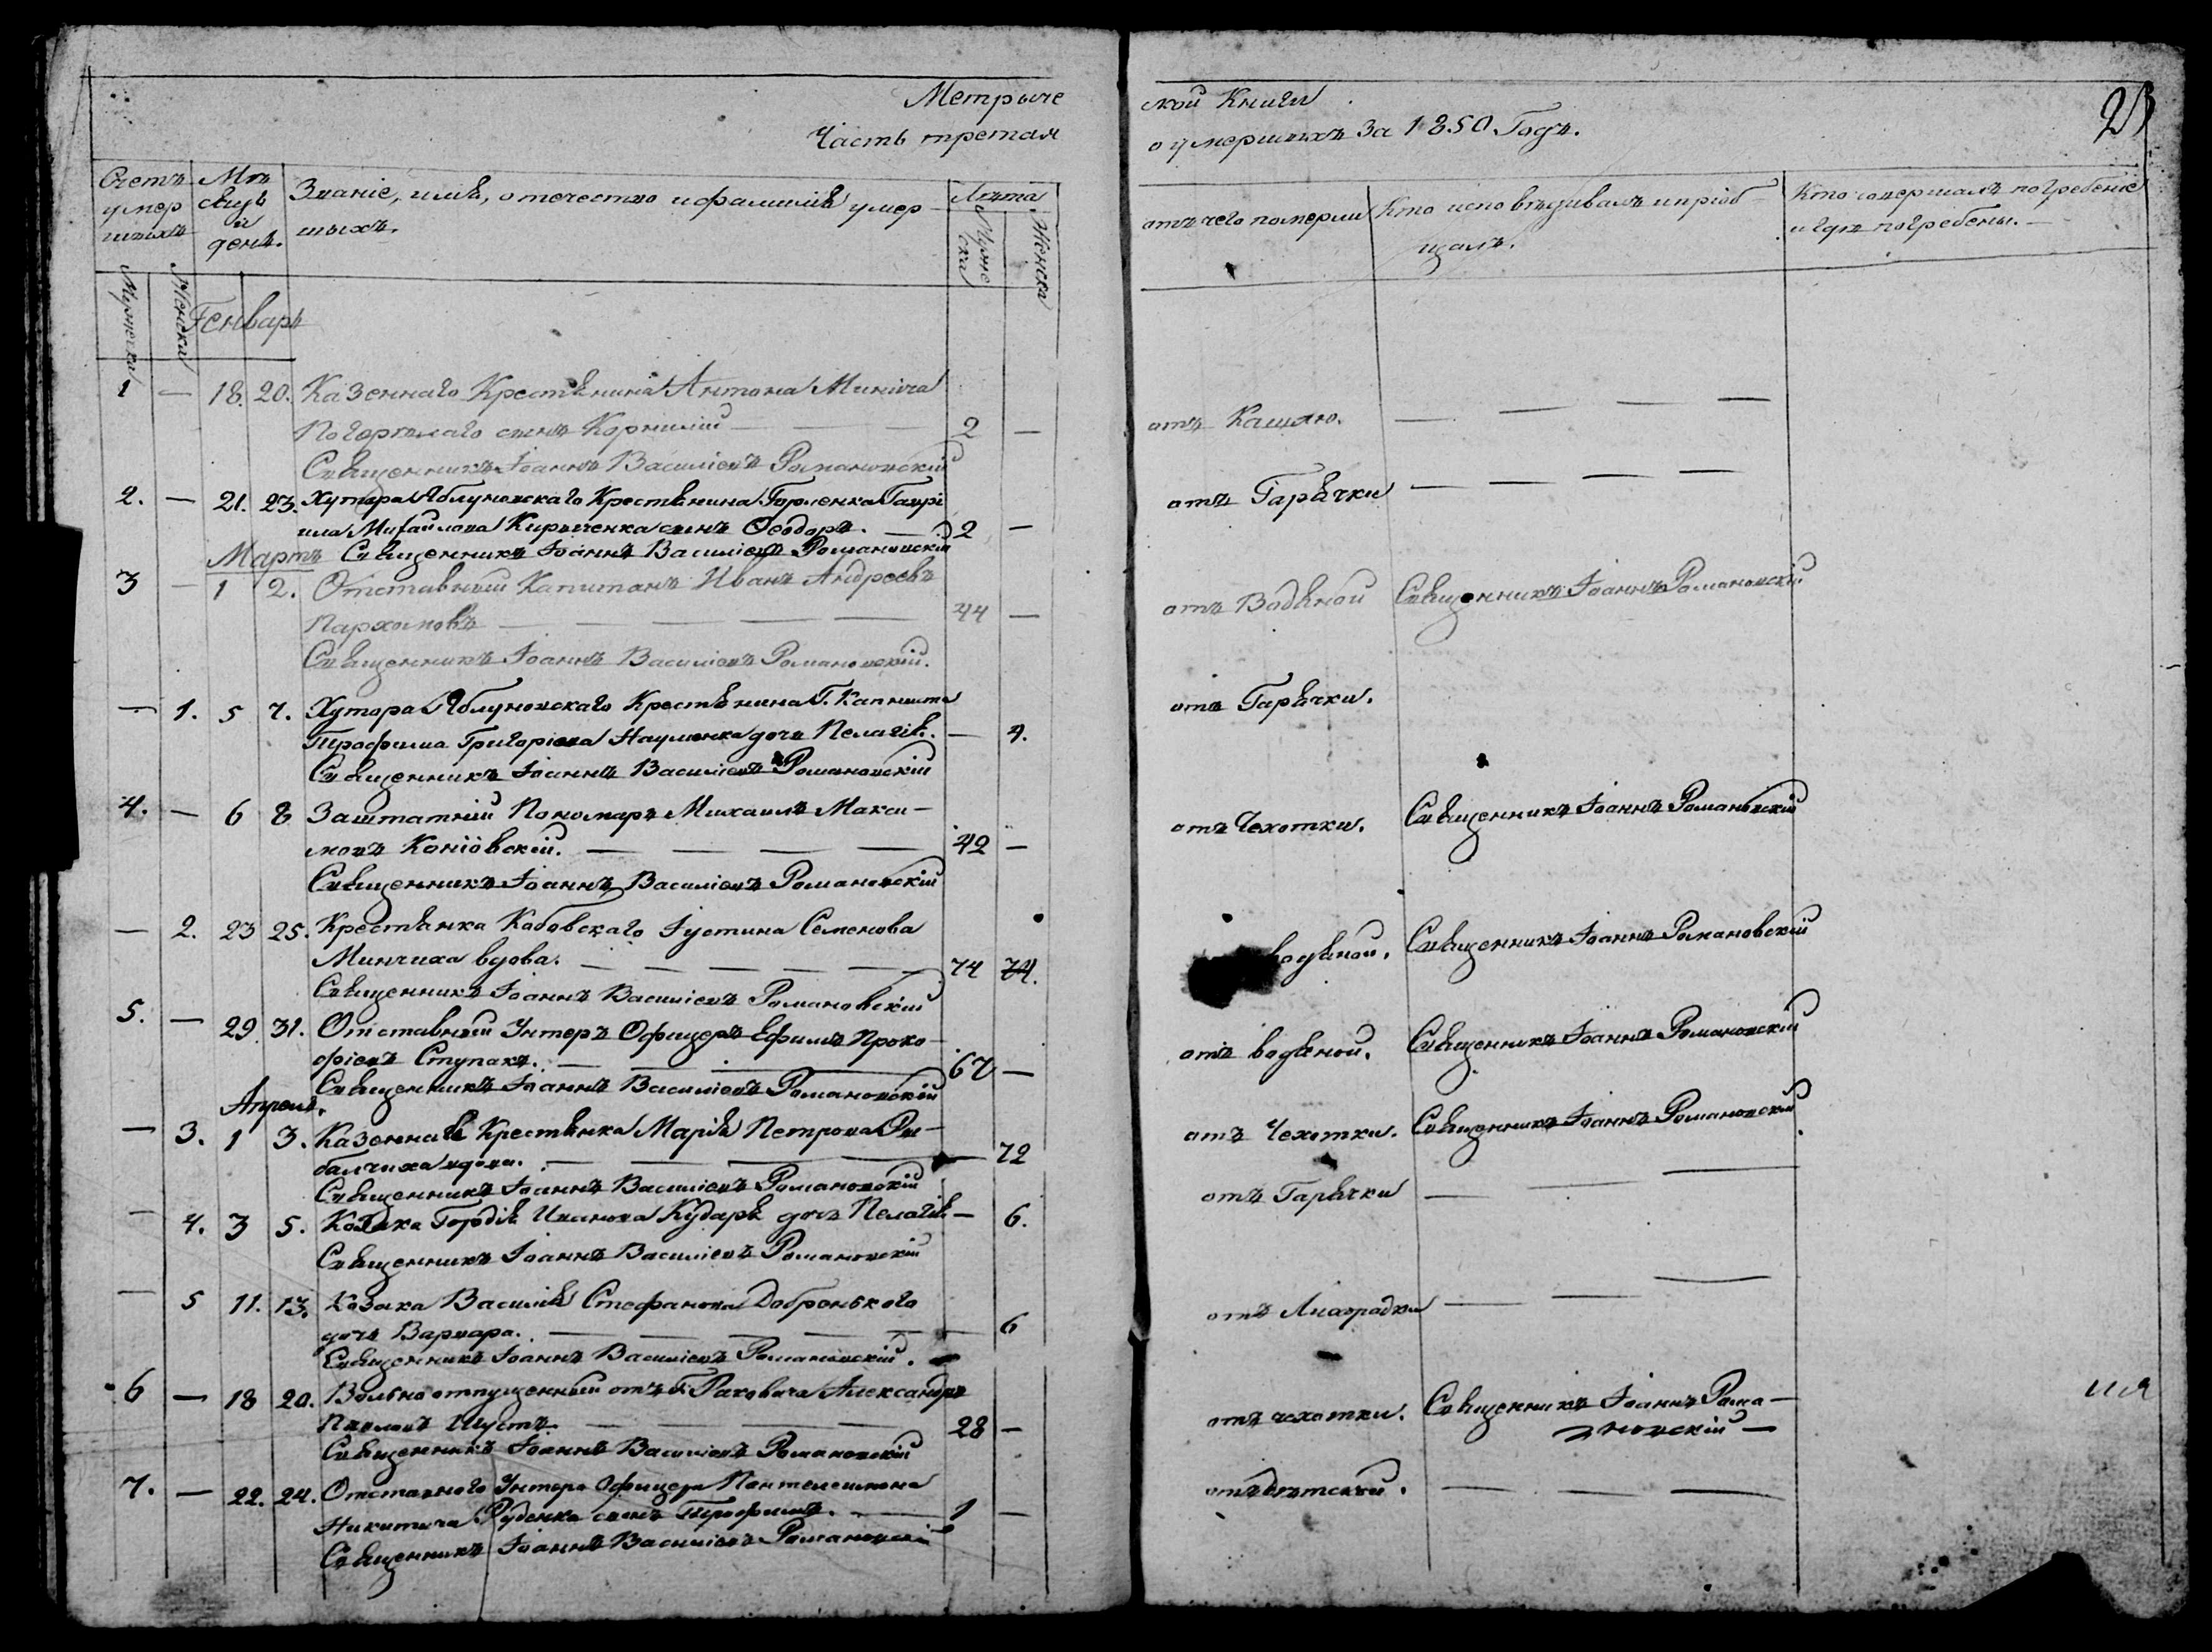 Метрыче
ской Книги
23
Часть третая
о умершихъ за 1850. Годъ.
Счетъ умер шыхъ
Мѣ сяцъ и день.
Званіе, имя, отечество и фамилія умер-
шыхъ.
Лѣта
отъ чего померли
Кто исповѣдивалъ и пріоб-
щалъ.
Кто совершалъ погребеніе
и гдѣ погребены.
Мужеска
Женска
Муже ска
Женска
Генварь
1 — 18. 20. Казеннаго Крестянина Антона Минича
Погорѣлаго сынъ Корнилій — 2 —
отъ Кашлю. — — — —
Священникъ Іоаннъ Василіевъ Романовскій
2. — 21. 23. Хутора Яблуновскаго Крестянина Горленка Гаврі
ила Михайлова Кириченка сынъ Ѳеодоръ. — 2 —
отъ Гарячки — — — —
Мартъ Священникъ Іоаннъ Василіевъ Романовскій
3 — 1 2. Отставный Капитанъ Иванъ Андреевъ
Пархомовъ — — — — — 44 —
отъ Водяной Священникъ Іоаннъ Романовскій
Священникъ Іоаннъ Василіевъ Романовскій.
— 1. 5 7. Хутора Яблуновскаго Крестянина Г. Капниста
Трофима Григоріева Науменка дочь Пелагія. — 4.
отъ Гарячки.
Священникъ Іоаннъ Василіевъ Романовскій
4. — 6 8 Заштатній Пономарь Михаилъ Макси-
мовъ Коніовскій. — — — — 42 —
отъ Чехотки. Священникъ Іоаннъ Романовскій
Священникъ Іоаннъ Василіевъ Романовскій
— 2. 23 25. Крестянка Кабовскаго Іустина Семенова
Минчиха вдова. — — — — — 74 74.
водяной. Священникъ Іоаннъ Романовскій
Священникъ Іоаннъ Василіевъ Романовскій
5. — 29. 31. Отставный Унтеръ Офицеръ Ефимъ Проко-
фіевъ Ступакъ. — — — 67 —
отъ водяной. Священникъ Іоаннъ Романовскій
Священникъ Іоаннъ Василіевъ Романовскій
Апрель.
— 3. 1 3. Казенная Крестянка Марія Петрова Ры-
балчиха вдова. — — — — 72
отъ Чехотки. Священникъ Іоаннъ Романовскій
Священникъ Іоаннъ Василіевъ Романовскій
— 4. 3 5. Козака Гордія Иванова Кударя дочь Пелагія — 6.
отъ Гарячки — — —
Священникъ Іоаннъ Василіевъ Романовскій
— 5 11. 13. Козака Василія Стефанова Добронького
дочь Варвара. — — — — — 6
отъ Лихорадки — — —
Священникъ Іоаннъ Василіевъ Романовскій.
6 — 18 20. Вольноотпущенный отъ Г. Раковича Александръ
Павловъ Шустъ. — — — — 28 —
отъ чехотки. Священникъ Іоаннъ Рома-
новскій —
Священникъ Іоаннъ Василіевъ Романовскій
7. — 22. 24. Отставного Унтера Офицера Пантелеимона
Никитича Руденка сынъ Трофимъ. — 1 —
отъ дѣтской. — — —
Священникъ Іоаннъ Василіевъ Романовскій